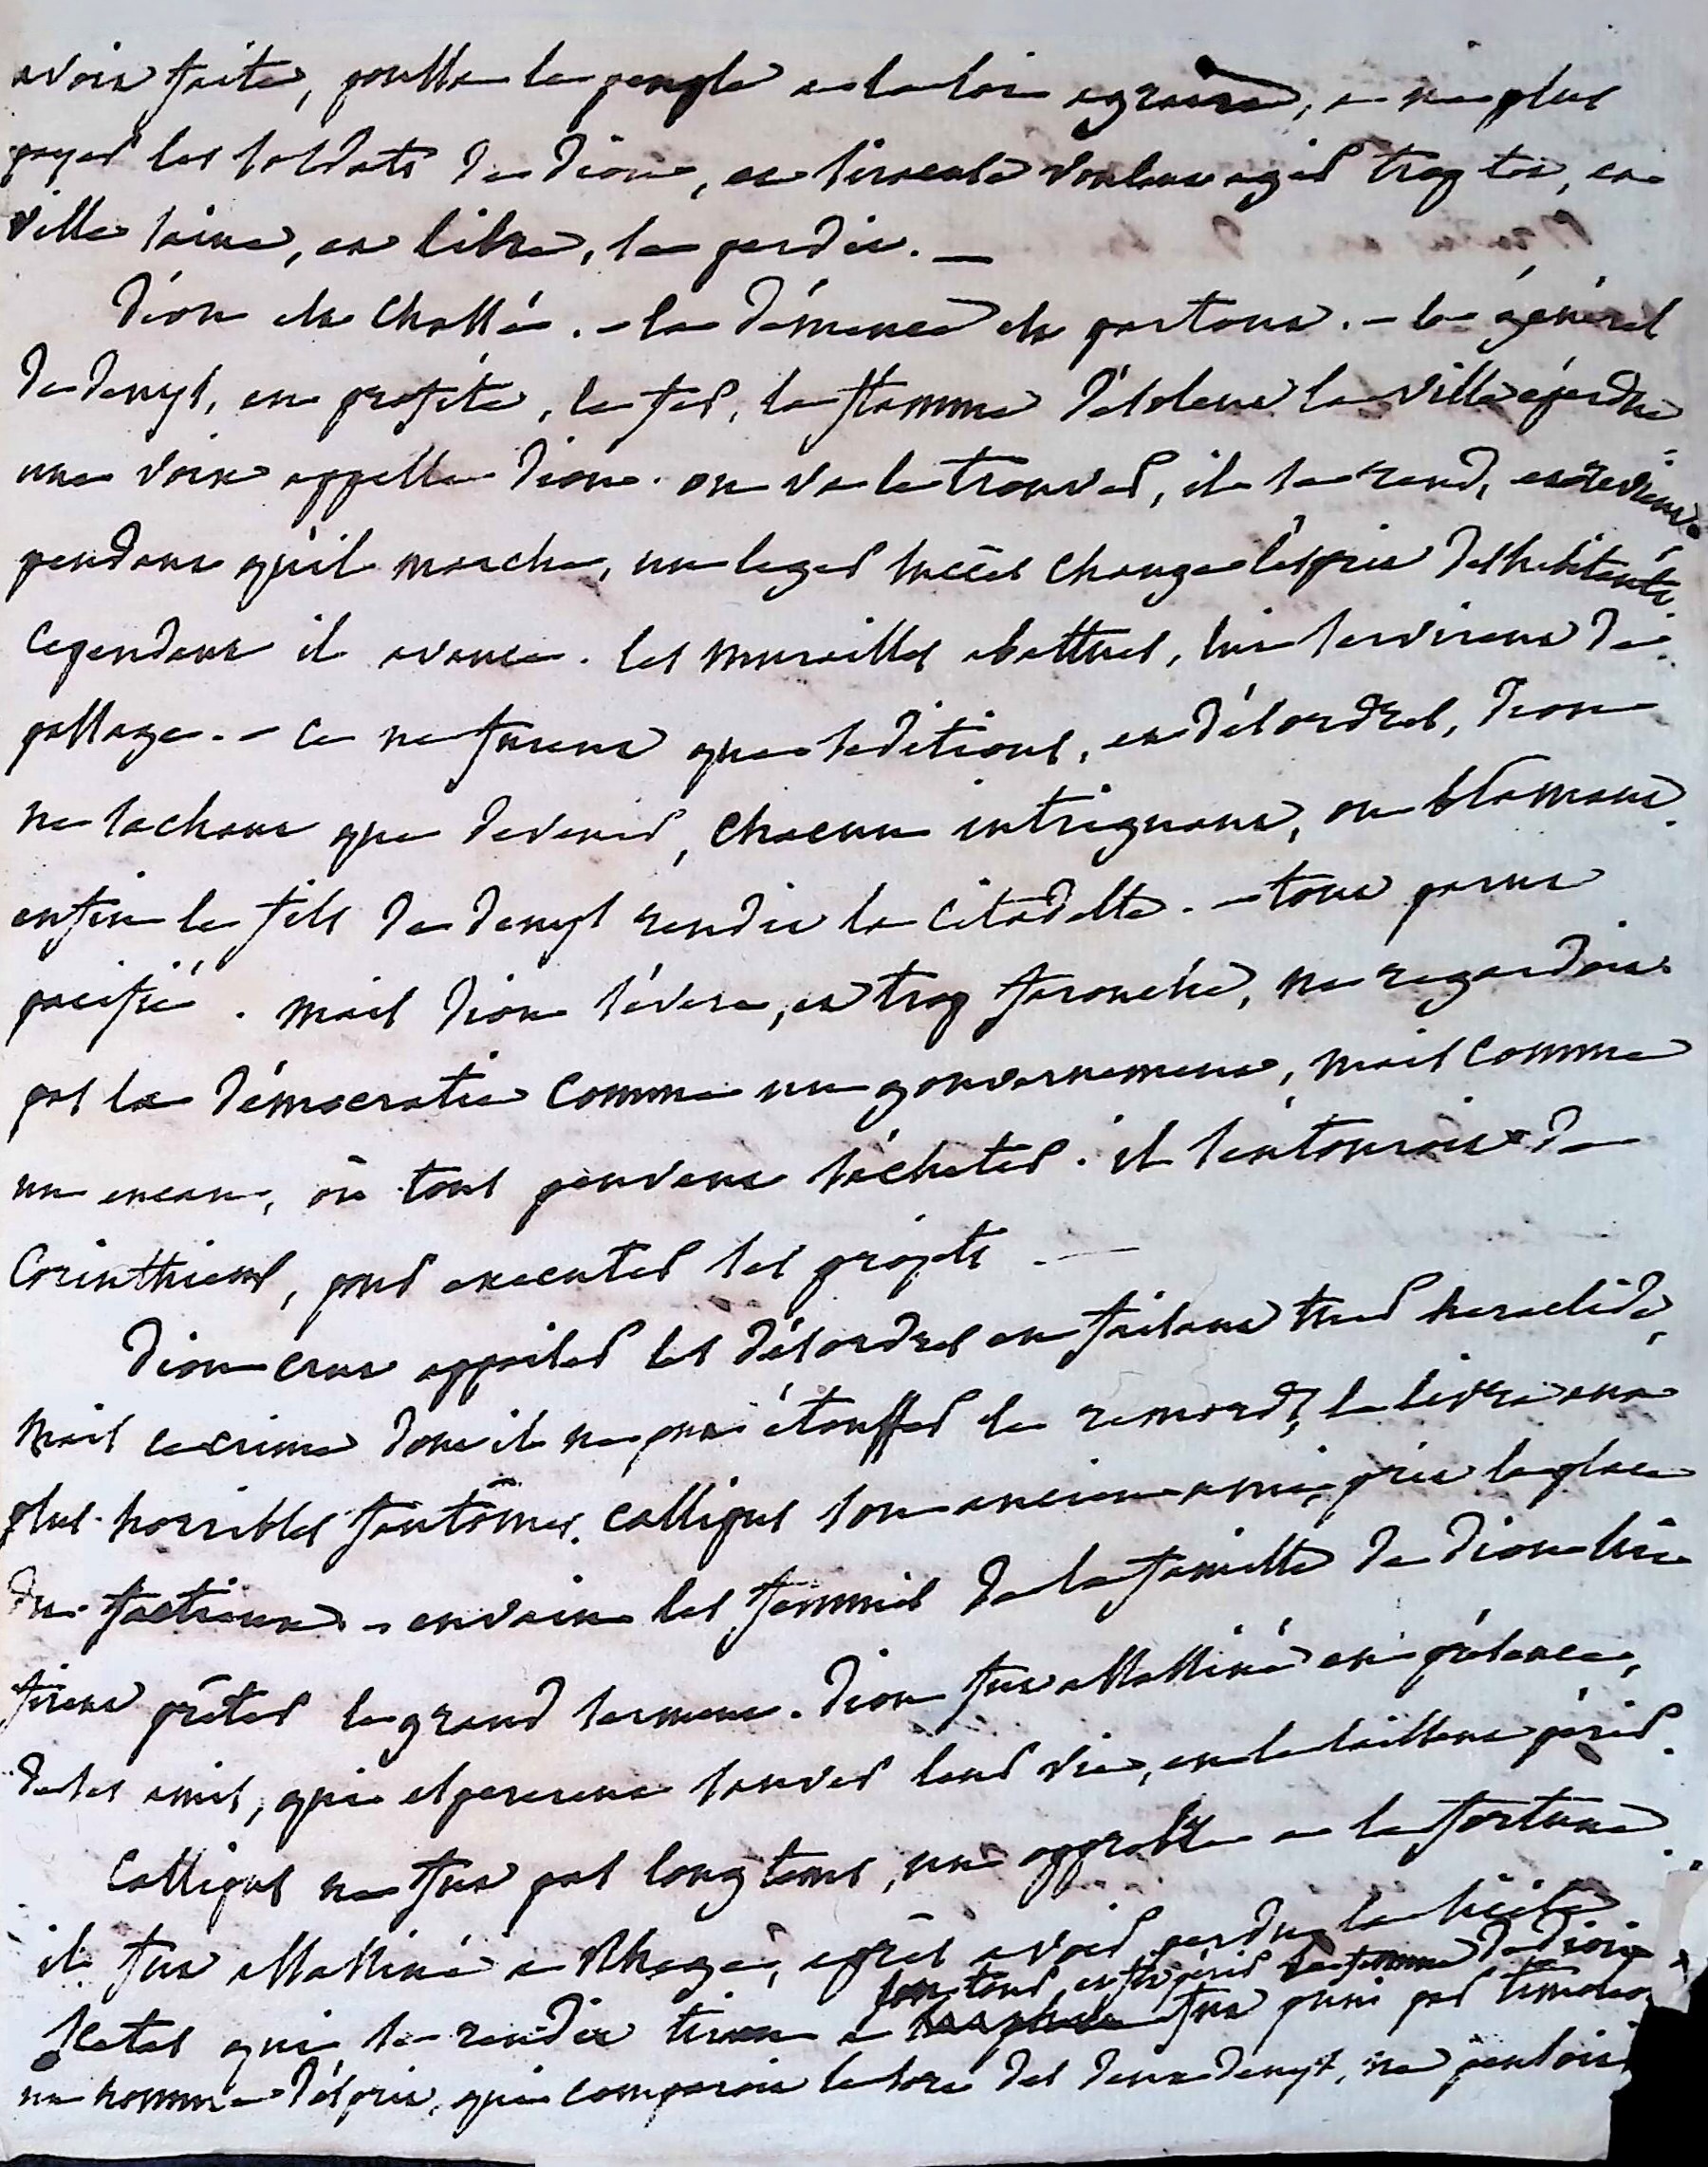 avoir faite, poussa le peuple a la loi agraire, a ne plus
payer les soldats de dion, et siracuse voulant agir trop tot, en
ville saine, et libre, se perdit. —
Dion est chassé. - la démence est partout. - le général
de denys, en profite, le fer, la flamme désolent la ville éperdue
une voix appelle dion. on va le trouver, il se rend, et revient.
pendant qu'il marche, un leger succès change l'esprit des habitants.
cependant il avance. les murailles abattues, lui servirent de
passage. - ce ne furent que séditions, et désordres, dion
ne sachant que devenir, chacun intriguant, ou blamant.
enfin le fils de denys rendit la citadelle. - tout parut
pacifié. mais dion sévère, et trop farouche, ne regardoit
pas la démocratie comme un gouvernement, mais comme
un encan, où tout peuvent s'acheter. il s'entouroit de
Corinthiens, pour executer ses projets. —
Dion crut appaiser les désordres en faisant tuer heraclide,
mais ce crime dont il ne put étouffer le remords, le livra aux
plus horribles fantômes. callipus son ancien ami, prit la place
du factieux. - en vain les femmes de la famille de dion lui
firent prêter le grand serment. dion fut assassiné en présence,
de ses amis, qui espererent sauver leur vie, en le laissant périr.
Callipus ne fut pas longtems, un opprobre a la fortune.
il fut assassiné a Rhege, après avoir perdu la sicile
Icetas qui fit périr la femme de dion
qui se rendit tiran a fut puni par timoleon
un homme d'esprit, qui comparoit le sort des deux denys, ne pensoit